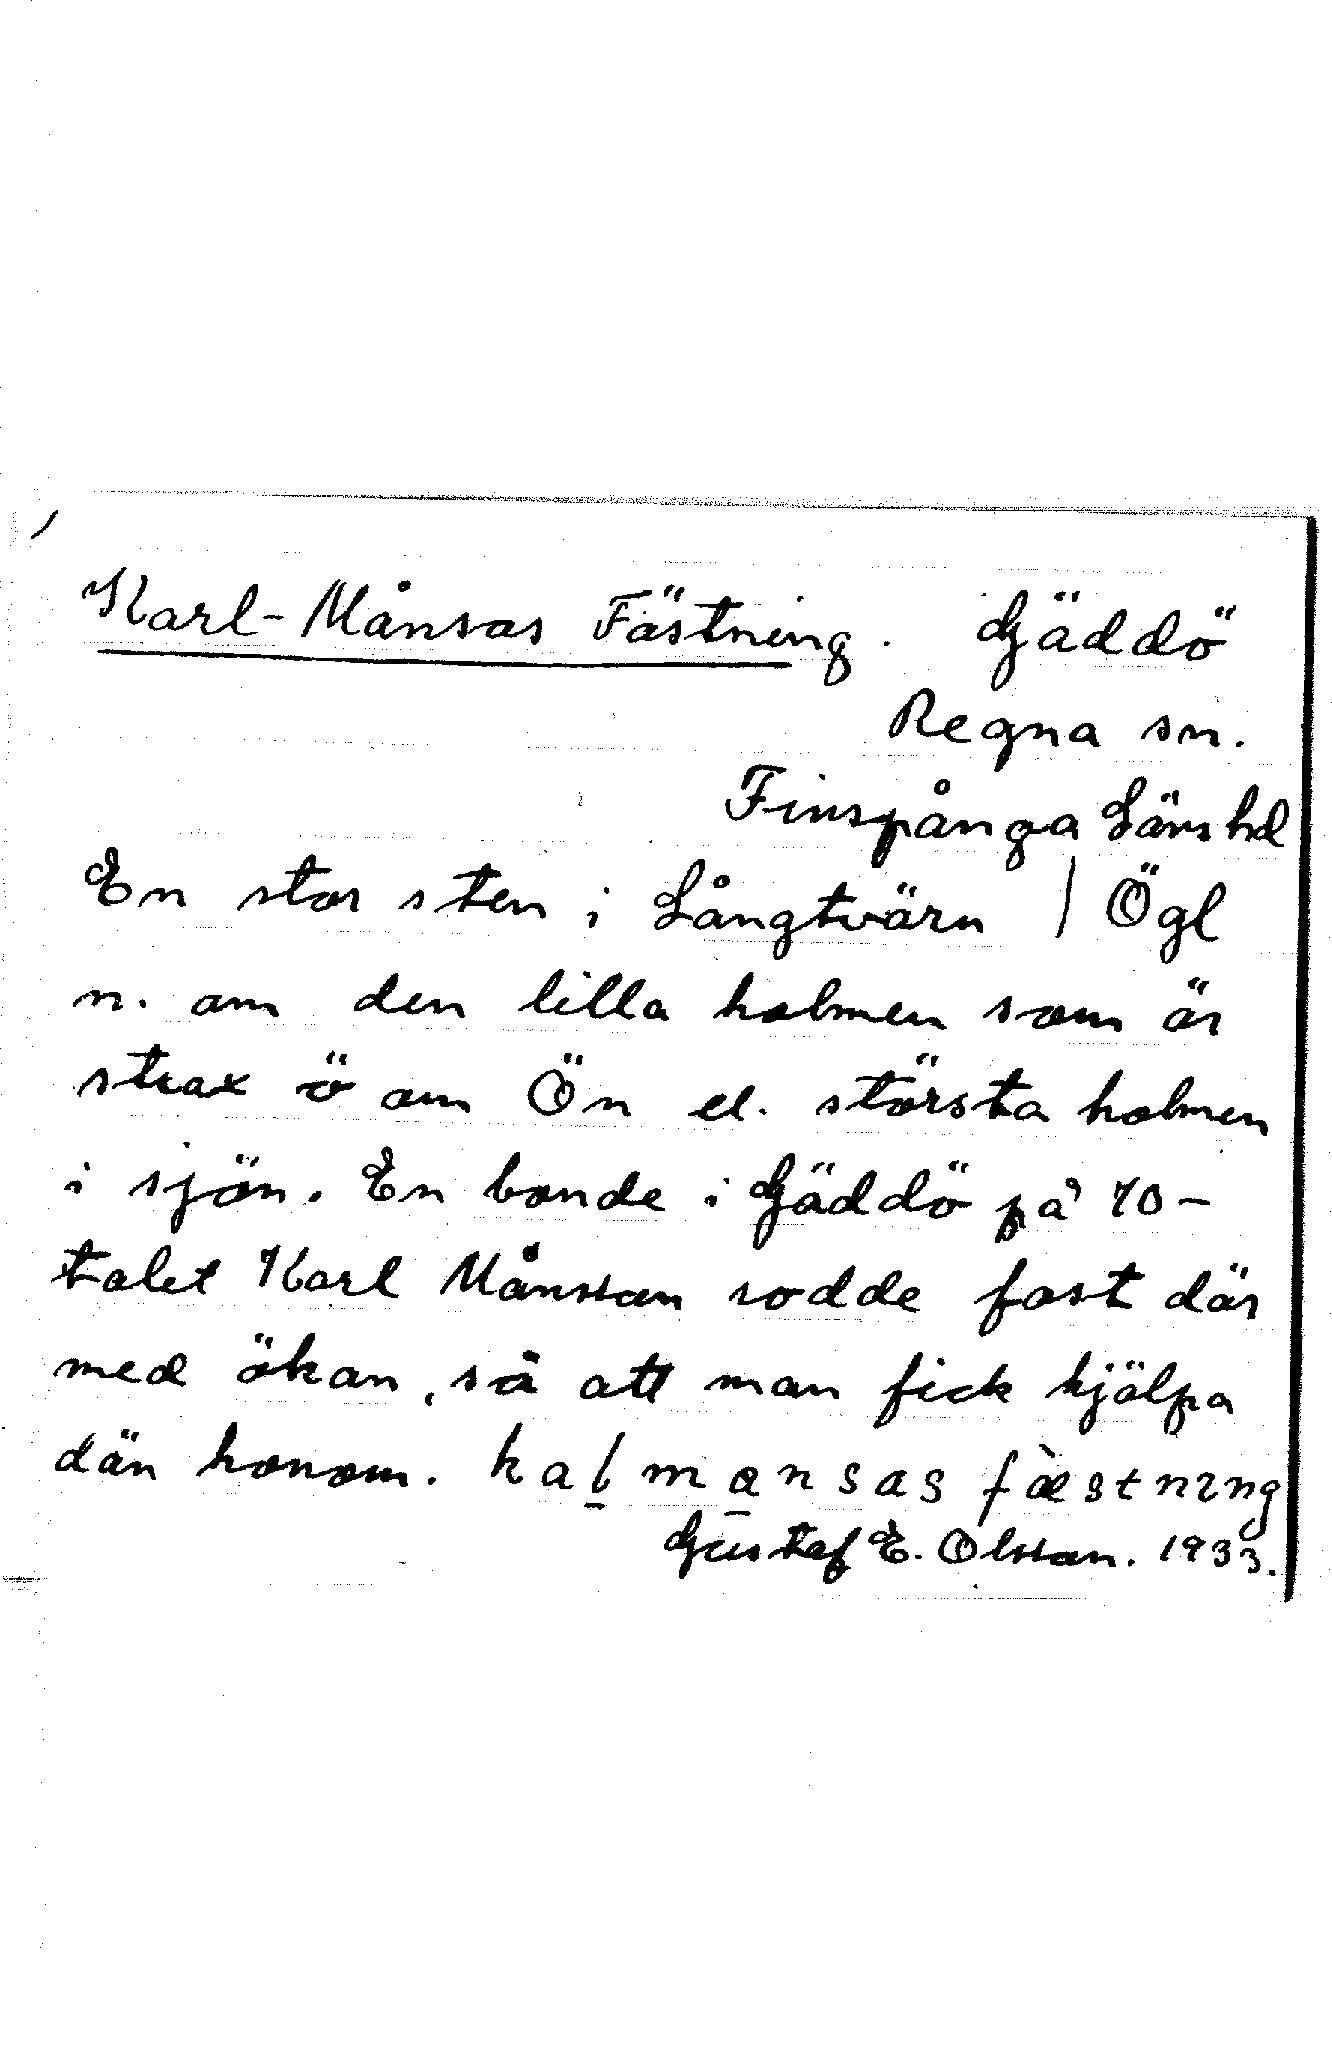 Karl-Månsas Fästning. Gäddö
Regna sn.
Finspånga Läns hd
En stor sten i Långtvärn | Ögl
n. om den lilla holmen som är
strax ö om Ön el. största holmen
i sjön. En bonde i Gäddö på 70-
talet Karl Månsson rodde fast där
med ökan, så att man fick hjälpa
dän honom. kalmansas fæ̀stning
Gustaf E. Olsson. 1933.